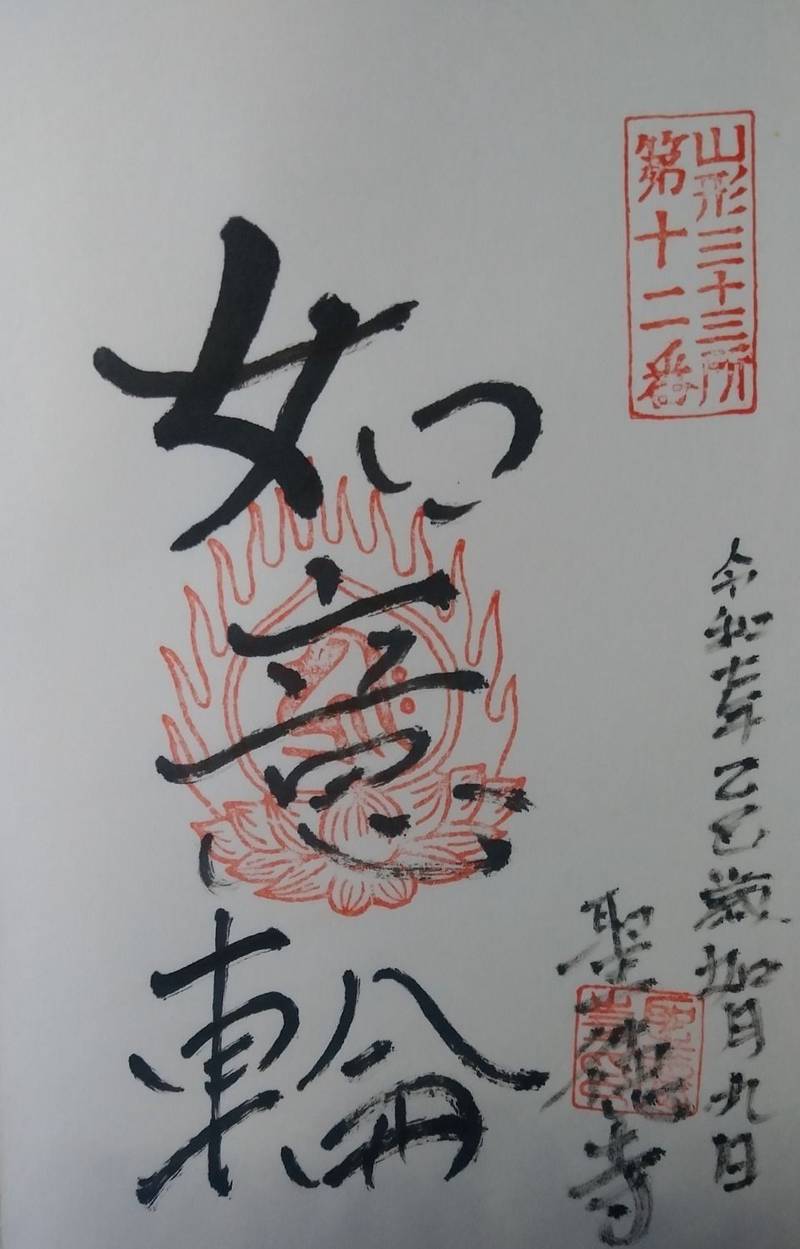 山形三十三所
第十二番
令和七年乙巳歳如月九日
聖徳寺
如意輪